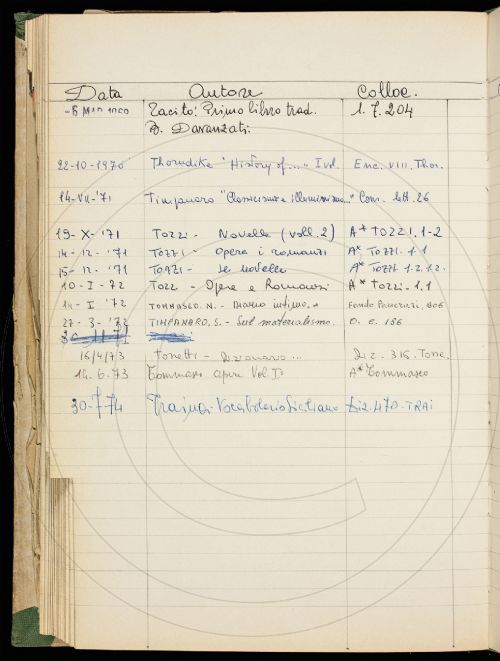 Data Autore Colloc.
Tacito: Primo libro trad. 1. 7. 204
B. Davanzati.
22-10-1970 Thorndike "History of...." I vol. Enc. VIII. Thor.
14-VII-'71 Timpanaro "Classicismo e illuminismo..." Con. lett. 26
19-X-'71 Tozzi - Novelle (voll. 2) A* TOZZI. 1-2
14-12-'71 TOZZI - Opere i romanzi A* TOZZI. 1.1
15-12-'71 TOZZI - Le novelle A* TOZZI 1.2.1.2.
10-I-72 Tozz - Opere e Romanzi A* Tozzi. 1.1
14-I '72 TOMMASEO. N. - Diario intimo. Fondo Pancrazi, 806
27-3-'72 TIMPANARO. S. - Sul materialismo. O. c. 156
16/4/73 Tonetti - Dizionario ... Diz. 315. Tone.
14-6-73 Tommaseo opere Vol I° A* Tommaseo
30-7-74 Traina: Vocabolario Siciliano Diz. 470-TRAI